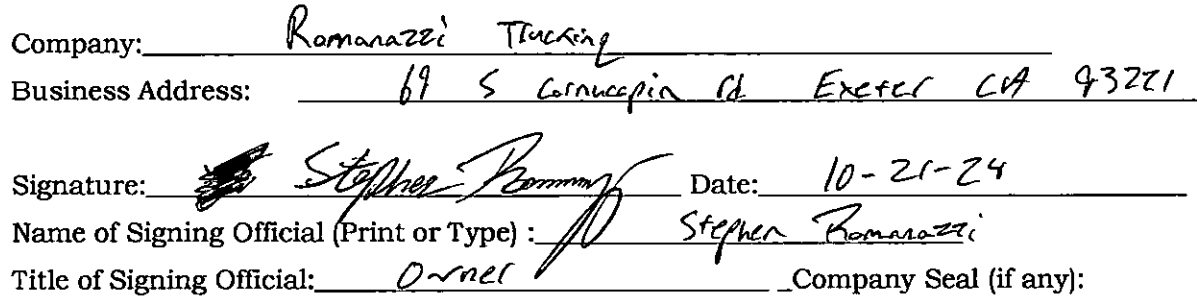 Company: Romanazzi Trucking
Business Address: 69 S Cornucopia rd Exeter CA 93221
Signature: Stephen Date: 10-21-24
Name of Signing Official (Print or Type) : Stephen Romanazzi
Title of Signing Official: Owner Company Seal (if any):